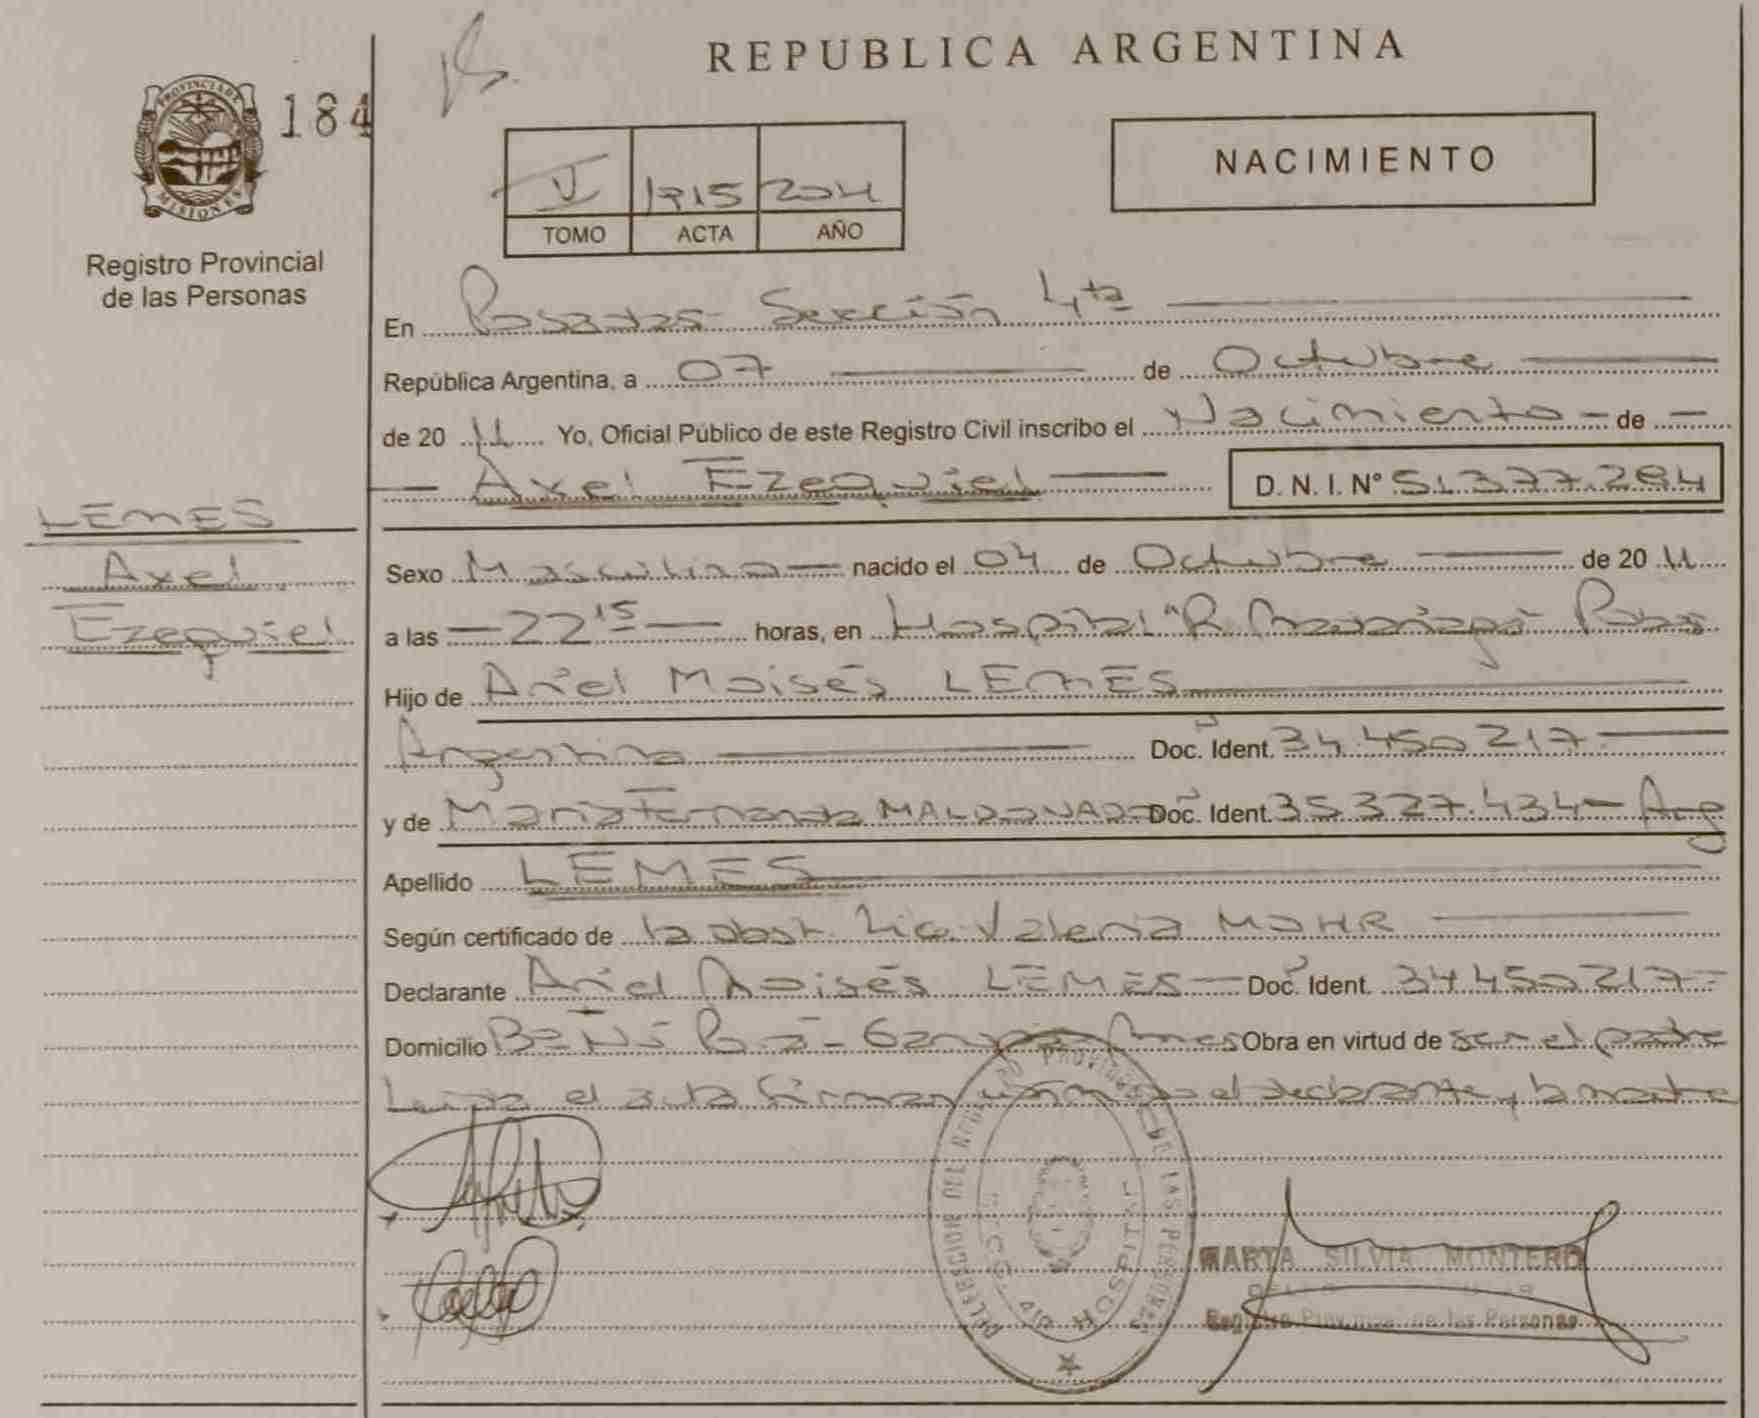 REPUBLICA ARGENTINA
PROVINCIA DE MISIONES
184
Registro Provincial
de las Personas
V 1915 2011
TOMO ACTA AÑO
NACIMIENTO
En Posadas Sección 4ta
República Argentina, a 07 de Octubre
de 20 11 Yo, Oficial Público de este Registro Civil inscribo el Nacimiento de
Axel Ezequiel D. N. I. N° 51.377.284
LEMES
Axel
Ezequiel
Sexo Masculino nacido el 04 de Octubre de 20 11
a las 22 15 horas, en Hospital "R. Madariaga" Pdas
Hijo de Ariel Moisés LEMES
Argentina Doc. Ident. 34.450.217
y de María Fernanda MALDONADO Doc. Ident. 35.327.434 Arg
Apellido LEMES
Según certificado de la obst. Lic. Valeria MOHR
Declarante Ariel Moisés LEMES Doc. Ident. 34.450.217
Domicilio Obra en virtud de ser el padre
Leida el acta firman el declarante y la madre
DELEGACION DEL REGISTRO PROVINCIAL DE LAS PERSONAS
HOSPITAL
MARTA SILVIA MONTERO
Registro Provincial de las Personas